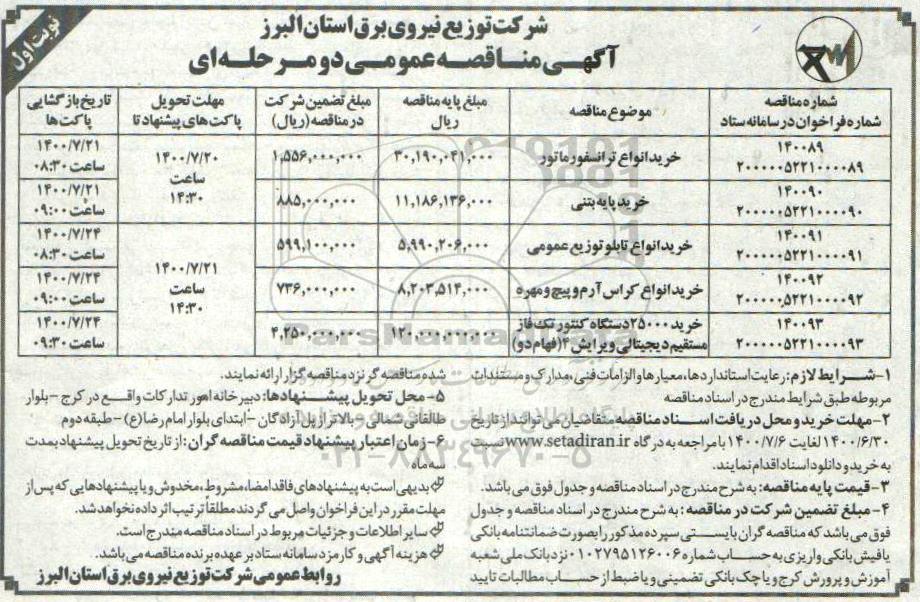 نوبت اول
شرکت توزیع نیروی برق استان البرز
آگهی مناقصه عمومی دو مرحله‌ای
شماره مناقصه
شماره فراخوان در سامانه ستاد
موضوع مناقصه
مبلغ پایه مناقصه
ریال
مبلغ تضمین شرکت
در مناقصه (ریال)
مهلت تحویل
پاکت‌های پیشنهاد تا
تاریخ بازگشایی
پاکت‌ها
۱۴۰۰۸۹
۲۰۰۰۰۰۵۲۲۱۰۰۰۰۸۹
خرید انواع ترانسفورماتور
۳۰,۱۹۰,۰۴۱,۰۰۰
۱,۵۵۶,۰۰۰,۰۰۰
۱۴۰۰/۷/۲۰
ساعت
۱۴:۳۰
۱۴۰۰/۷/۲۱
ساعت ۰۸:۳۰
۱۴۰۰۹۰
۲۰۰۰۰۰۵۲۲۱۰۰۰۰۹۰
خرید پایه بتنی
۱۱,۱۸۶,۱۳۶,۰۰۰
۸۸۵,۰۰۰,۰۰۰
۱۴۰۰/۷/۲۱
ساعت ۰۹:۰۰
۱۴۰۰۹۱
۲۰۰۰۰۰۵۲۲۱۰۰۰۰۹۱
خرید انواع تابلو توزیع عمومی
۵,۹۹۰,۲۰۶,۰۰۰
۵۹۹,۱۰۰,۰۰۰
۱۴۰۰/۷/۲۱
ساعت
۱۴:۳۰
۱۴۰۰/۷/۲۴
ساعت ۰۸:۳۰
۱۴۰۰۹۲
۲۰۰۰۰۰۵۲۲۱۰۰۰۰۹۲
خرید انواع کراس آرم و پیچ و مهره
۸,۲۰۳,۵۱۴,۰۰۰
۷۳۶,۰۰۰,۰۰۰
۱۴۰۰/۷/۲۴
ساعت ۰۹:۰۰
۱۴۰۰۹۳
۲۰۰۰۰۰۵۲۲۱۰۰۰۰۹۳
خرید ۲۵۰۰۰ دستگاه کنتور تک فاز
مستقیم دیجیتالی ویرایش ۴ (فهام دو)
۱۲۰,۰۰۰,۰۰۰,۰۰۰
۴,۲۵۰,۰۰۰,۰۰۰
۱۴۰۰/۷/۲۴
ساعت ۰۹:۳۰
۱- شرایط لازم: رعایت استانداردها، معیارها و الزامات فنی، مدارک و مستندات
مربوطه طبق شرایط مندرج در اسناد مناقصه
۲- مهلت خرید و محل دریافت اسناد مناقصه متقاضیان می توانند از تاریخ
۱۴۰۰/۶/۳۰ لغایت ۱۴۰۰/۷/۶ با مراجعه به درگاه www.setadiran.ir نسبت
به خرید و دانلود اسناد اقدام نمایند.
۳- قیمت پایه مناقصه: به شرح مندرج در اسناد مناقصه و جدول فوق می باشد.
۴- مبلغ تضمین شرکت در مناقصه: به شرح مندرج در اسناد مناقصه و جدول
فوق می باشد که مناقصه گران بایستی سپرده مذکور را بصورت ضمانتنامه بانکی
یا فیش بانکی واریزی به حساب شماره ۰۱۰۲۷۹۵۱۲۶۰۰۶ نزد بانک ملی شعبه
آموزش و پرورش کرج و یا چک بانکی تضمینی و یا ضبط از حساب مطالبات تایید
شده مناقصه گر نزد مناقصه گزار ارائه نمایند.
۵- محل تحویل پیشنهادها: دبیرخانه امور تدارکات واقع در کرج - بلوار
طالقانی شمالی - بالاتر از پل آزادگان - ابتدای بلوار امام رضا (ع) - طبقه دوم
۶- زمان اعتبار پیشنهاد قیمت مناقصه گران: از تاریخ تحویل پیشنهاد بمدت
سه ماه
بدیهی است به پیشنهادهای فاقد امضا، مشروط، مخدوش و یا پیشنهادهایی که پس از
مهلت مقرر در این فراخوان واصل می گردند مطلقاً ترتیب اثر داده نخواهد شد.
سایر اطلاعات و جزئیات مربوط در اسناد مناقصه مندرج است.
هزینه آگهی و کارمزد سامانه ستاد بر عهده برنده مناقصه می باشد.
روابط عمومی شرکت توزیع نیروی برق استان البرز
ParsNamadData
۰۲۱-۸۸۳۴۹۶۷۰-۵